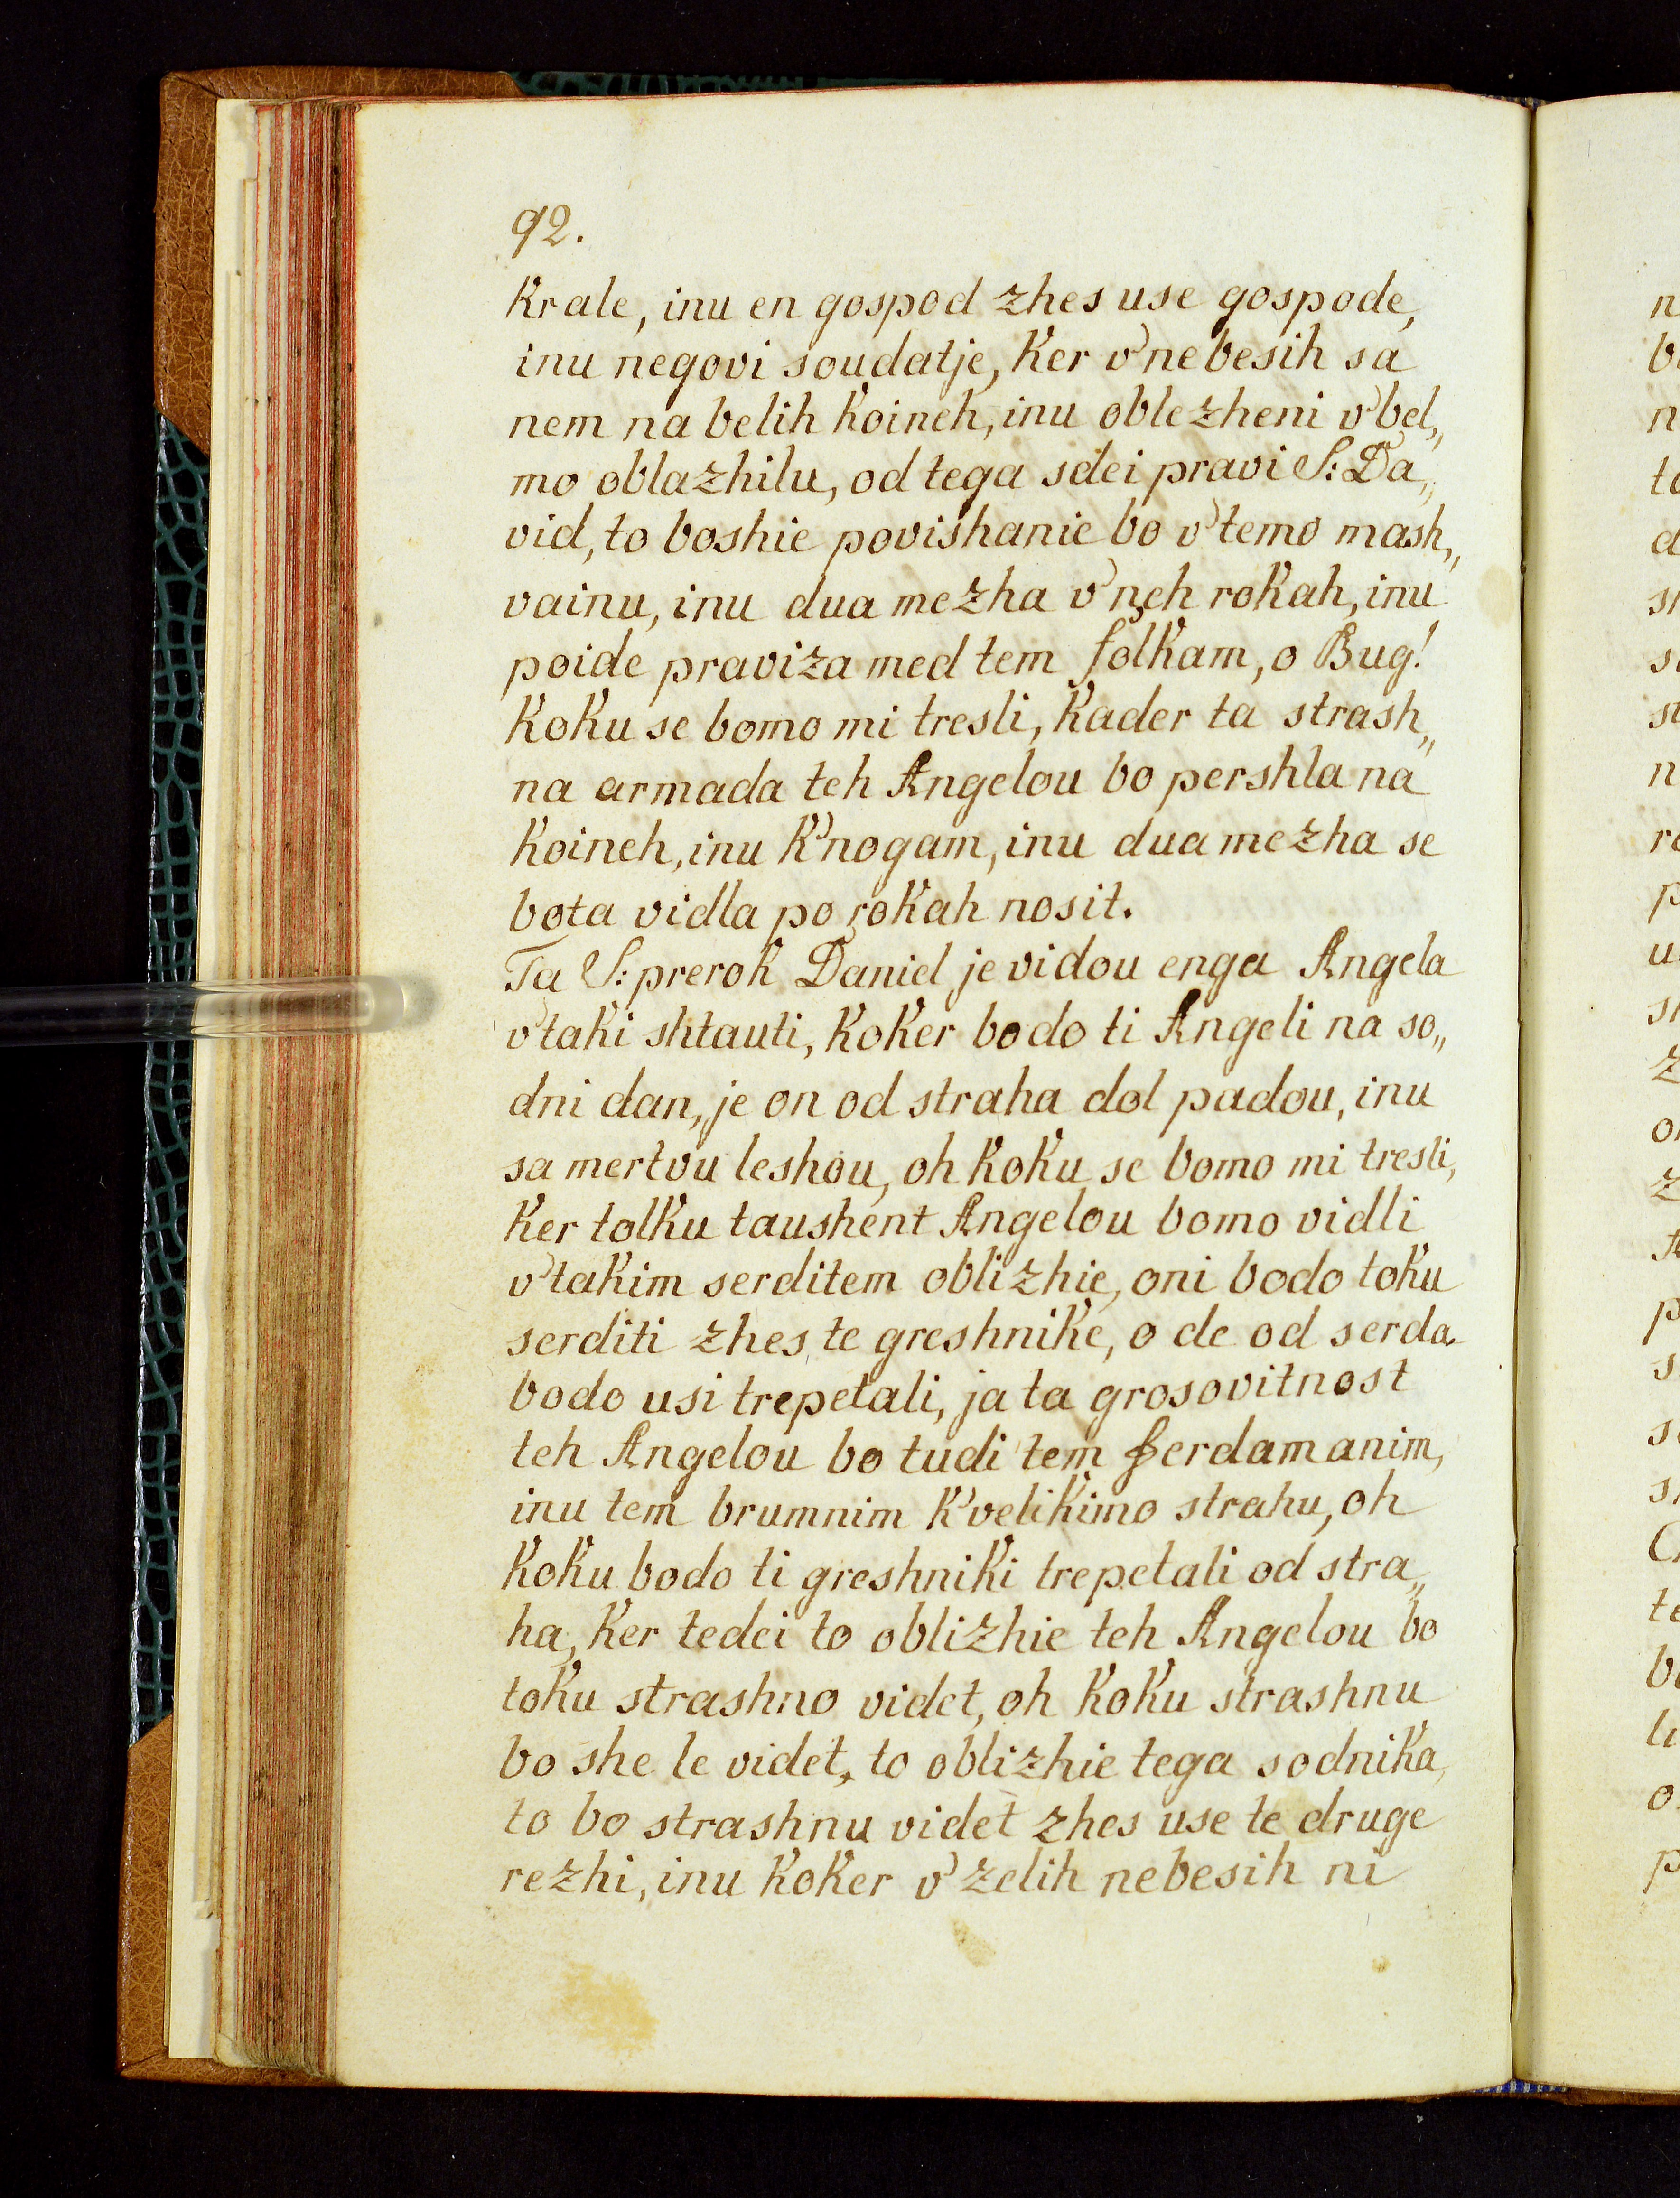 92.
Krale, inu en gospod zhes use gospode,
inu negovi soudatje, Ker v'nebesih sa
nem na belih Koineh, inu oblezheni v'bel„
mo oblazhilu, od tega sdei pravi S: Da„
vid, to boshie povishanie bo v'temo mash„
vainu, inu dua mezha v'neh roKah, inu
poide praviza med tem folKam, o Bug!
KoKu se bomo mi tresli, Kader ta strash„
na armada teh Angelou bo pershla na
Koineh, inu K'nogam, inu dua mezha se
bota vidla po roKah nosit.
Ta S: preroK Daniel je vidou enga Angela
v'taKi shtauti, KoKer bodo ti Angeli na so„
dni dan, je on od straha dol padou, inu
sa mertvu leshou, oh KoKu se bomo mi tresli,
Ker tolKu taushent Angelou bomo vidli
v'taKim serditem oblizhie, oni bodo toKu
serditi zhes te greshniKe, o de od serda
bodo usi trepetali, ja ta grosovitnost
teh Angelou bo tudi tem ferdamanim,
inu tem brumnim K'veliKimo strahu, oh
KoKu bodo ti greshniKi trepetali od stra„
ha, Ker tedei to oblizhie teh Angelou bo
toKu strashno videt, oh KoKu strashnu
bo she le videt, to oblizhie tega sodniKa,
to bo strashnu videt zhes use te druge
rezhi, inu KoKer v'zelih nebesih ni